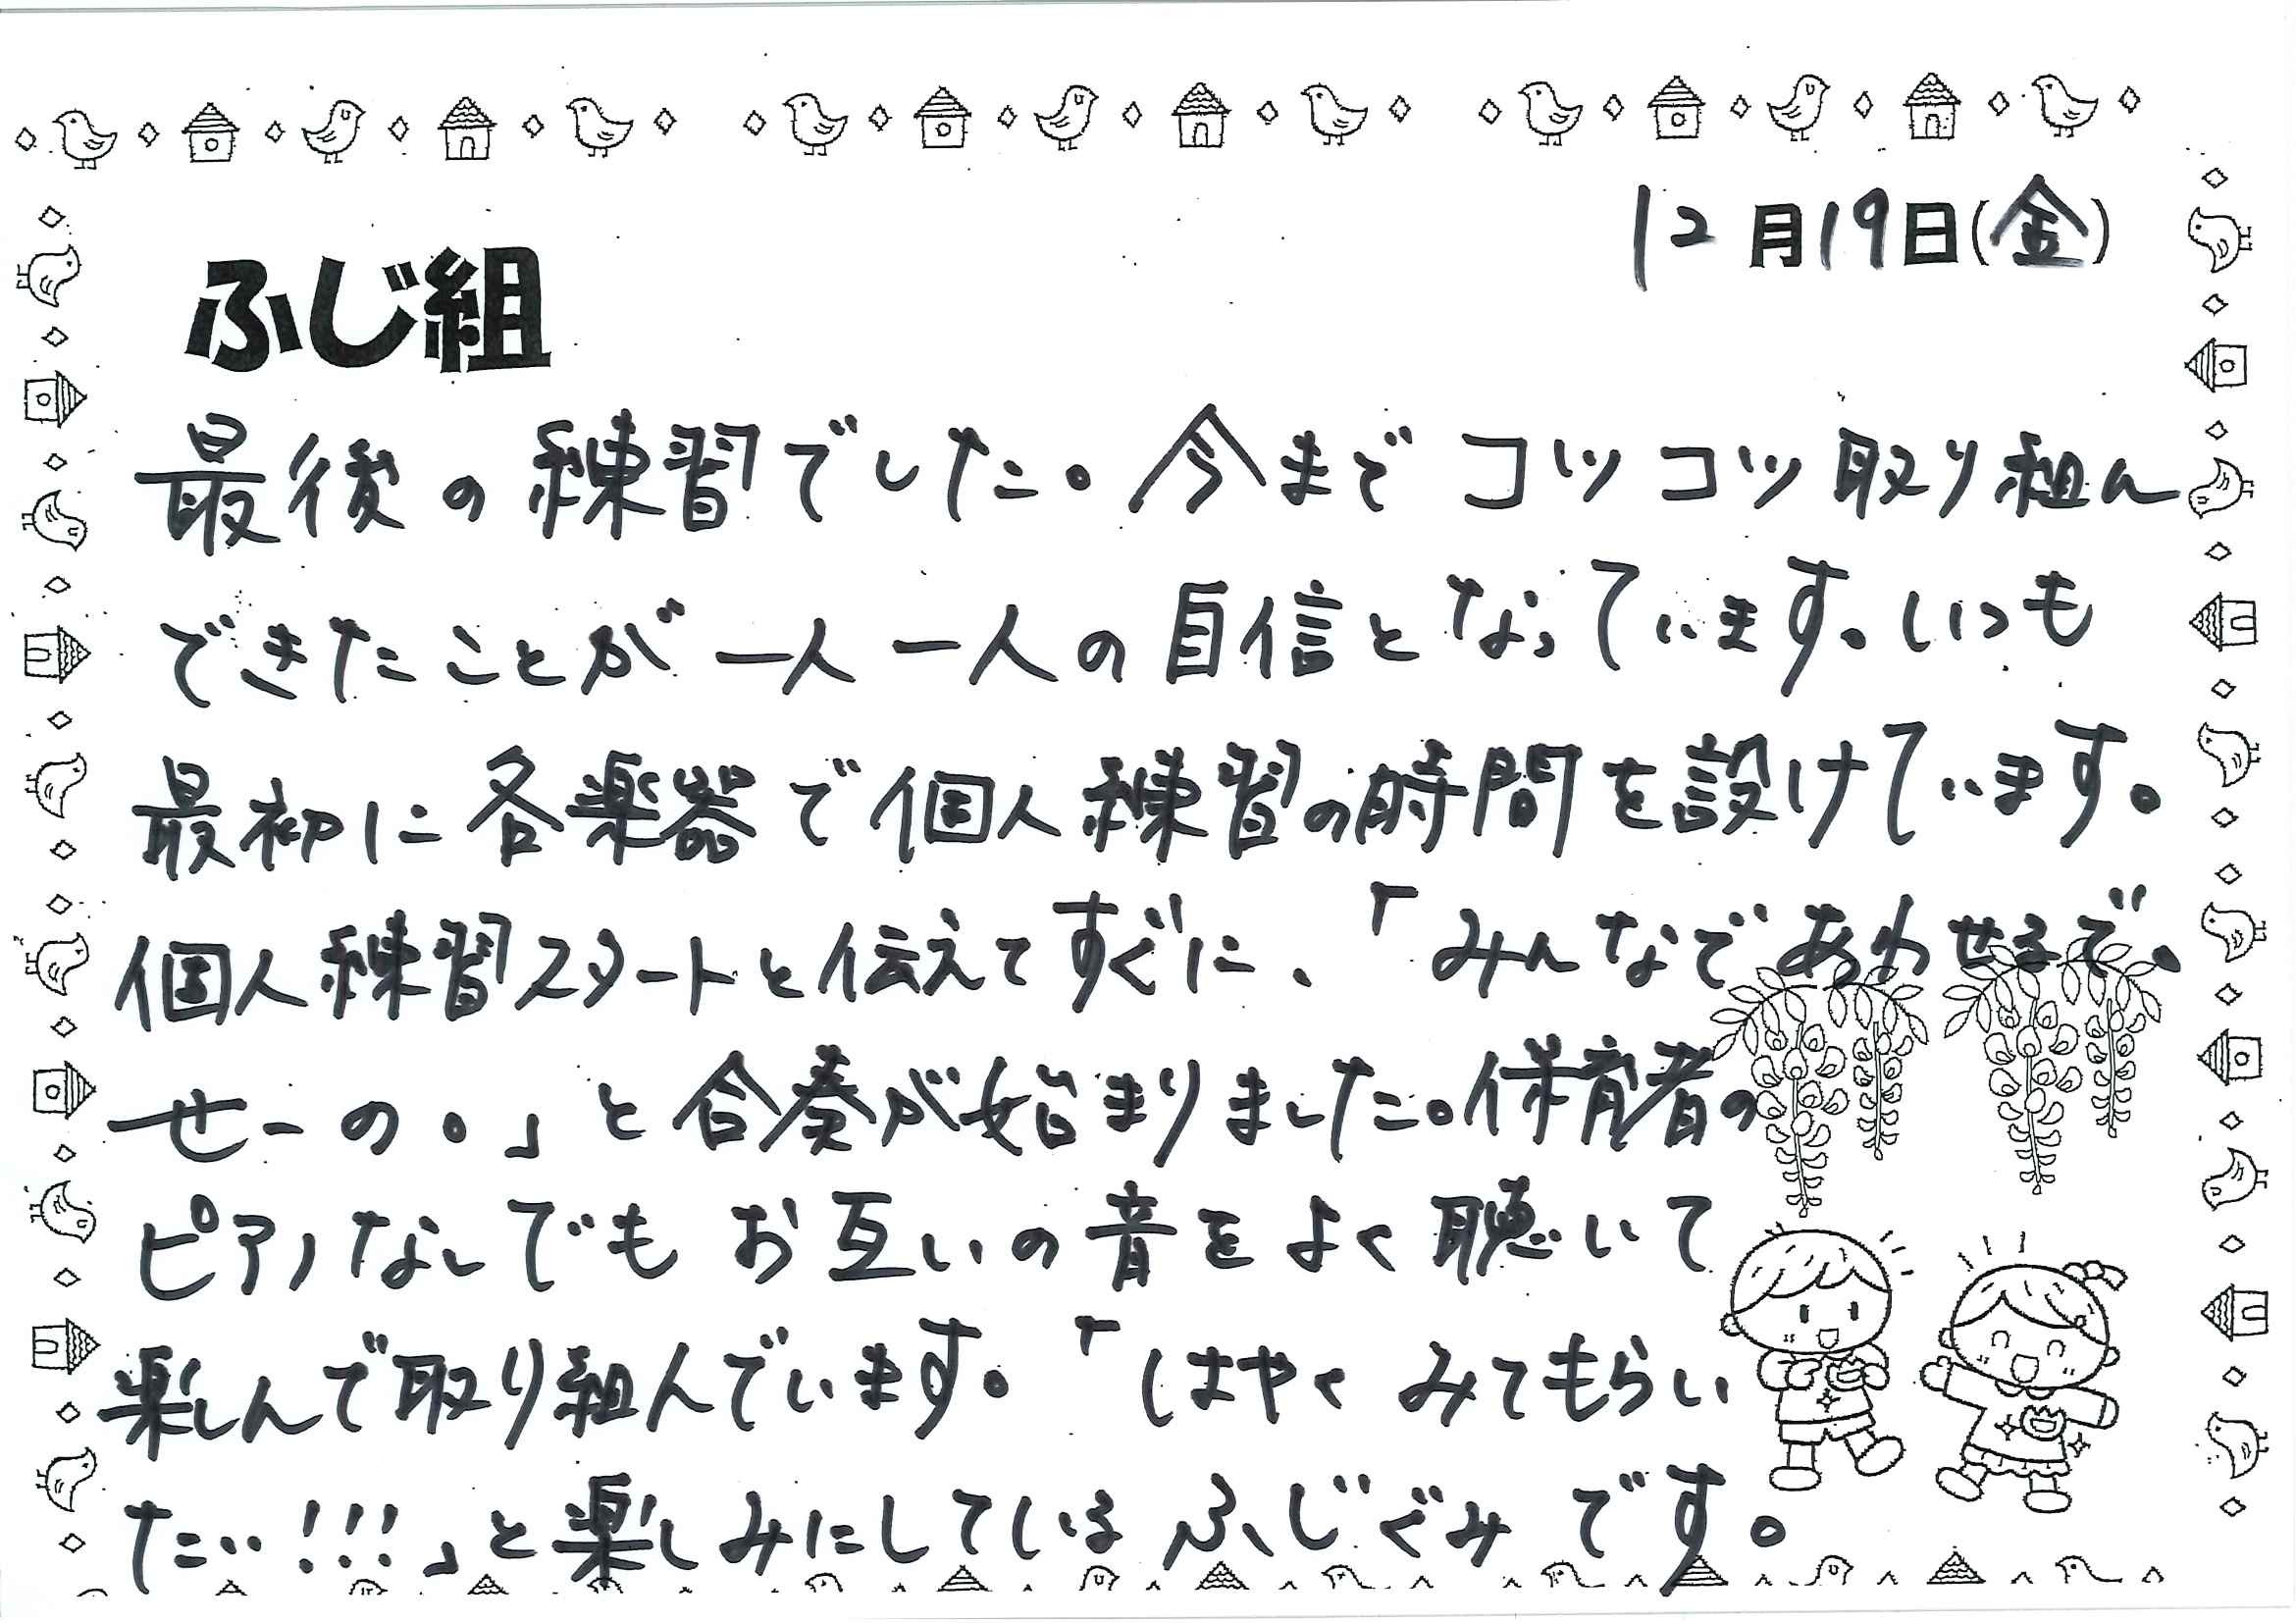 12月19日(金)
ふじ組
最後の練習でした。今までコツコツ取り組ん
できたことが一人一人の自信となっています。いつも
最初に各楽器で個人練習の時間を設けています。
個人練習スタートと伝えてすぐに、「みんなであわせるで。
せーの。」と合奏が始まりました。保育者の
ピアノなしでもお互いの音をよく聴いて
楽しんで取り組んでいます。「はやくみてもらい
たい!!!」と楽しみにしているふじぐみです。